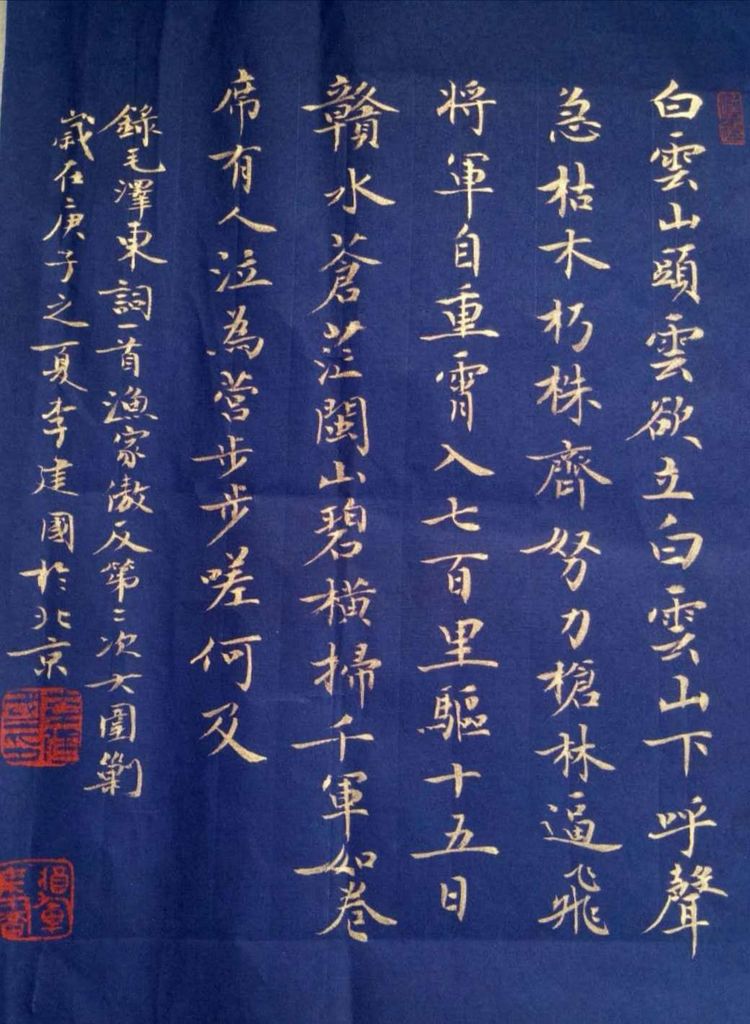 白雲山頭雲欲立白雲山下呼聲
急枯木朽株齊努力槍林逼飛
将軍自重霄入七百里驅十五日
贛水蒼茫閩山碧横掃千軍如卷
席有人泣為營步步嗟何及
錄毛澤東詞一首漁家傲反第二次大圍剿
歲在庚子之夏李建國於北京